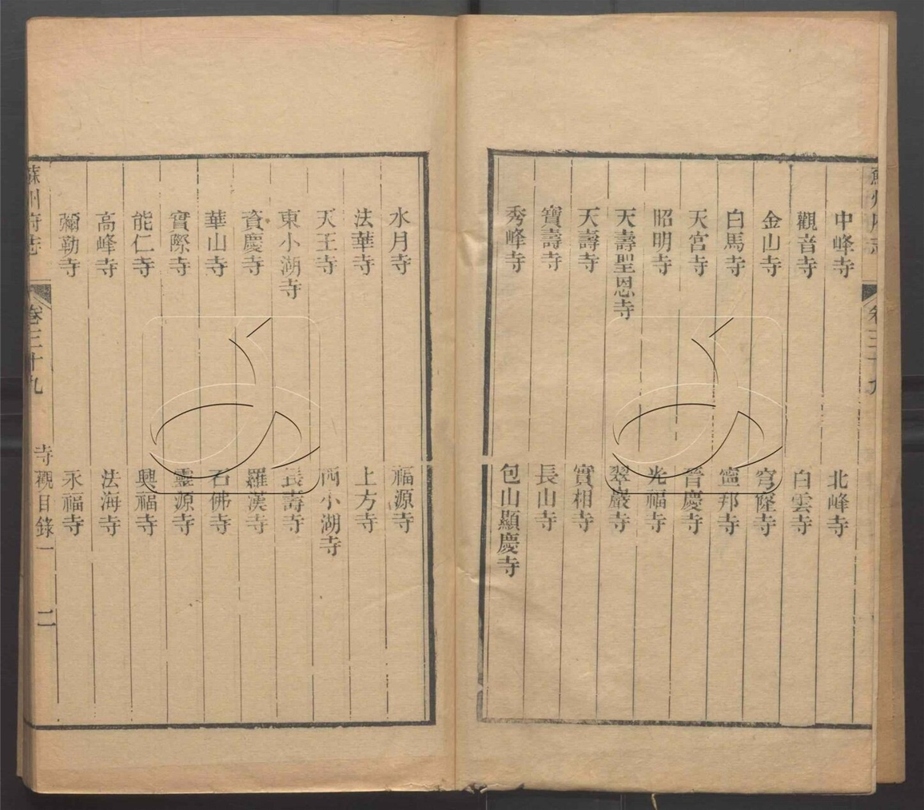 蘇州府志 卷三十九
中峰寺 北峰寺
觀音寺 白雲寺
金山寺 穹窿寺
白馬寺 寗邦寺
天宮寺 晉慶寺
昭明寺 光福寺
天壽聖恩寺 翠巖寺
天壽寺 實相寺
寶壽寺 長山寺
秀峰寺 包山顯慶寺
水月寺 福源寺
法華寺 上方寺
天王寺 西小湖寺
東小湖寺 長壽寺
資慶寺 羅漢寺
華山寺 石佛寺
實際寺 靈源寺
能仁寺 興福寺
高峰寺 法海寺
彌勒寺 永福寺
蘇州府志 卷三十九 寺觀目錄一 二